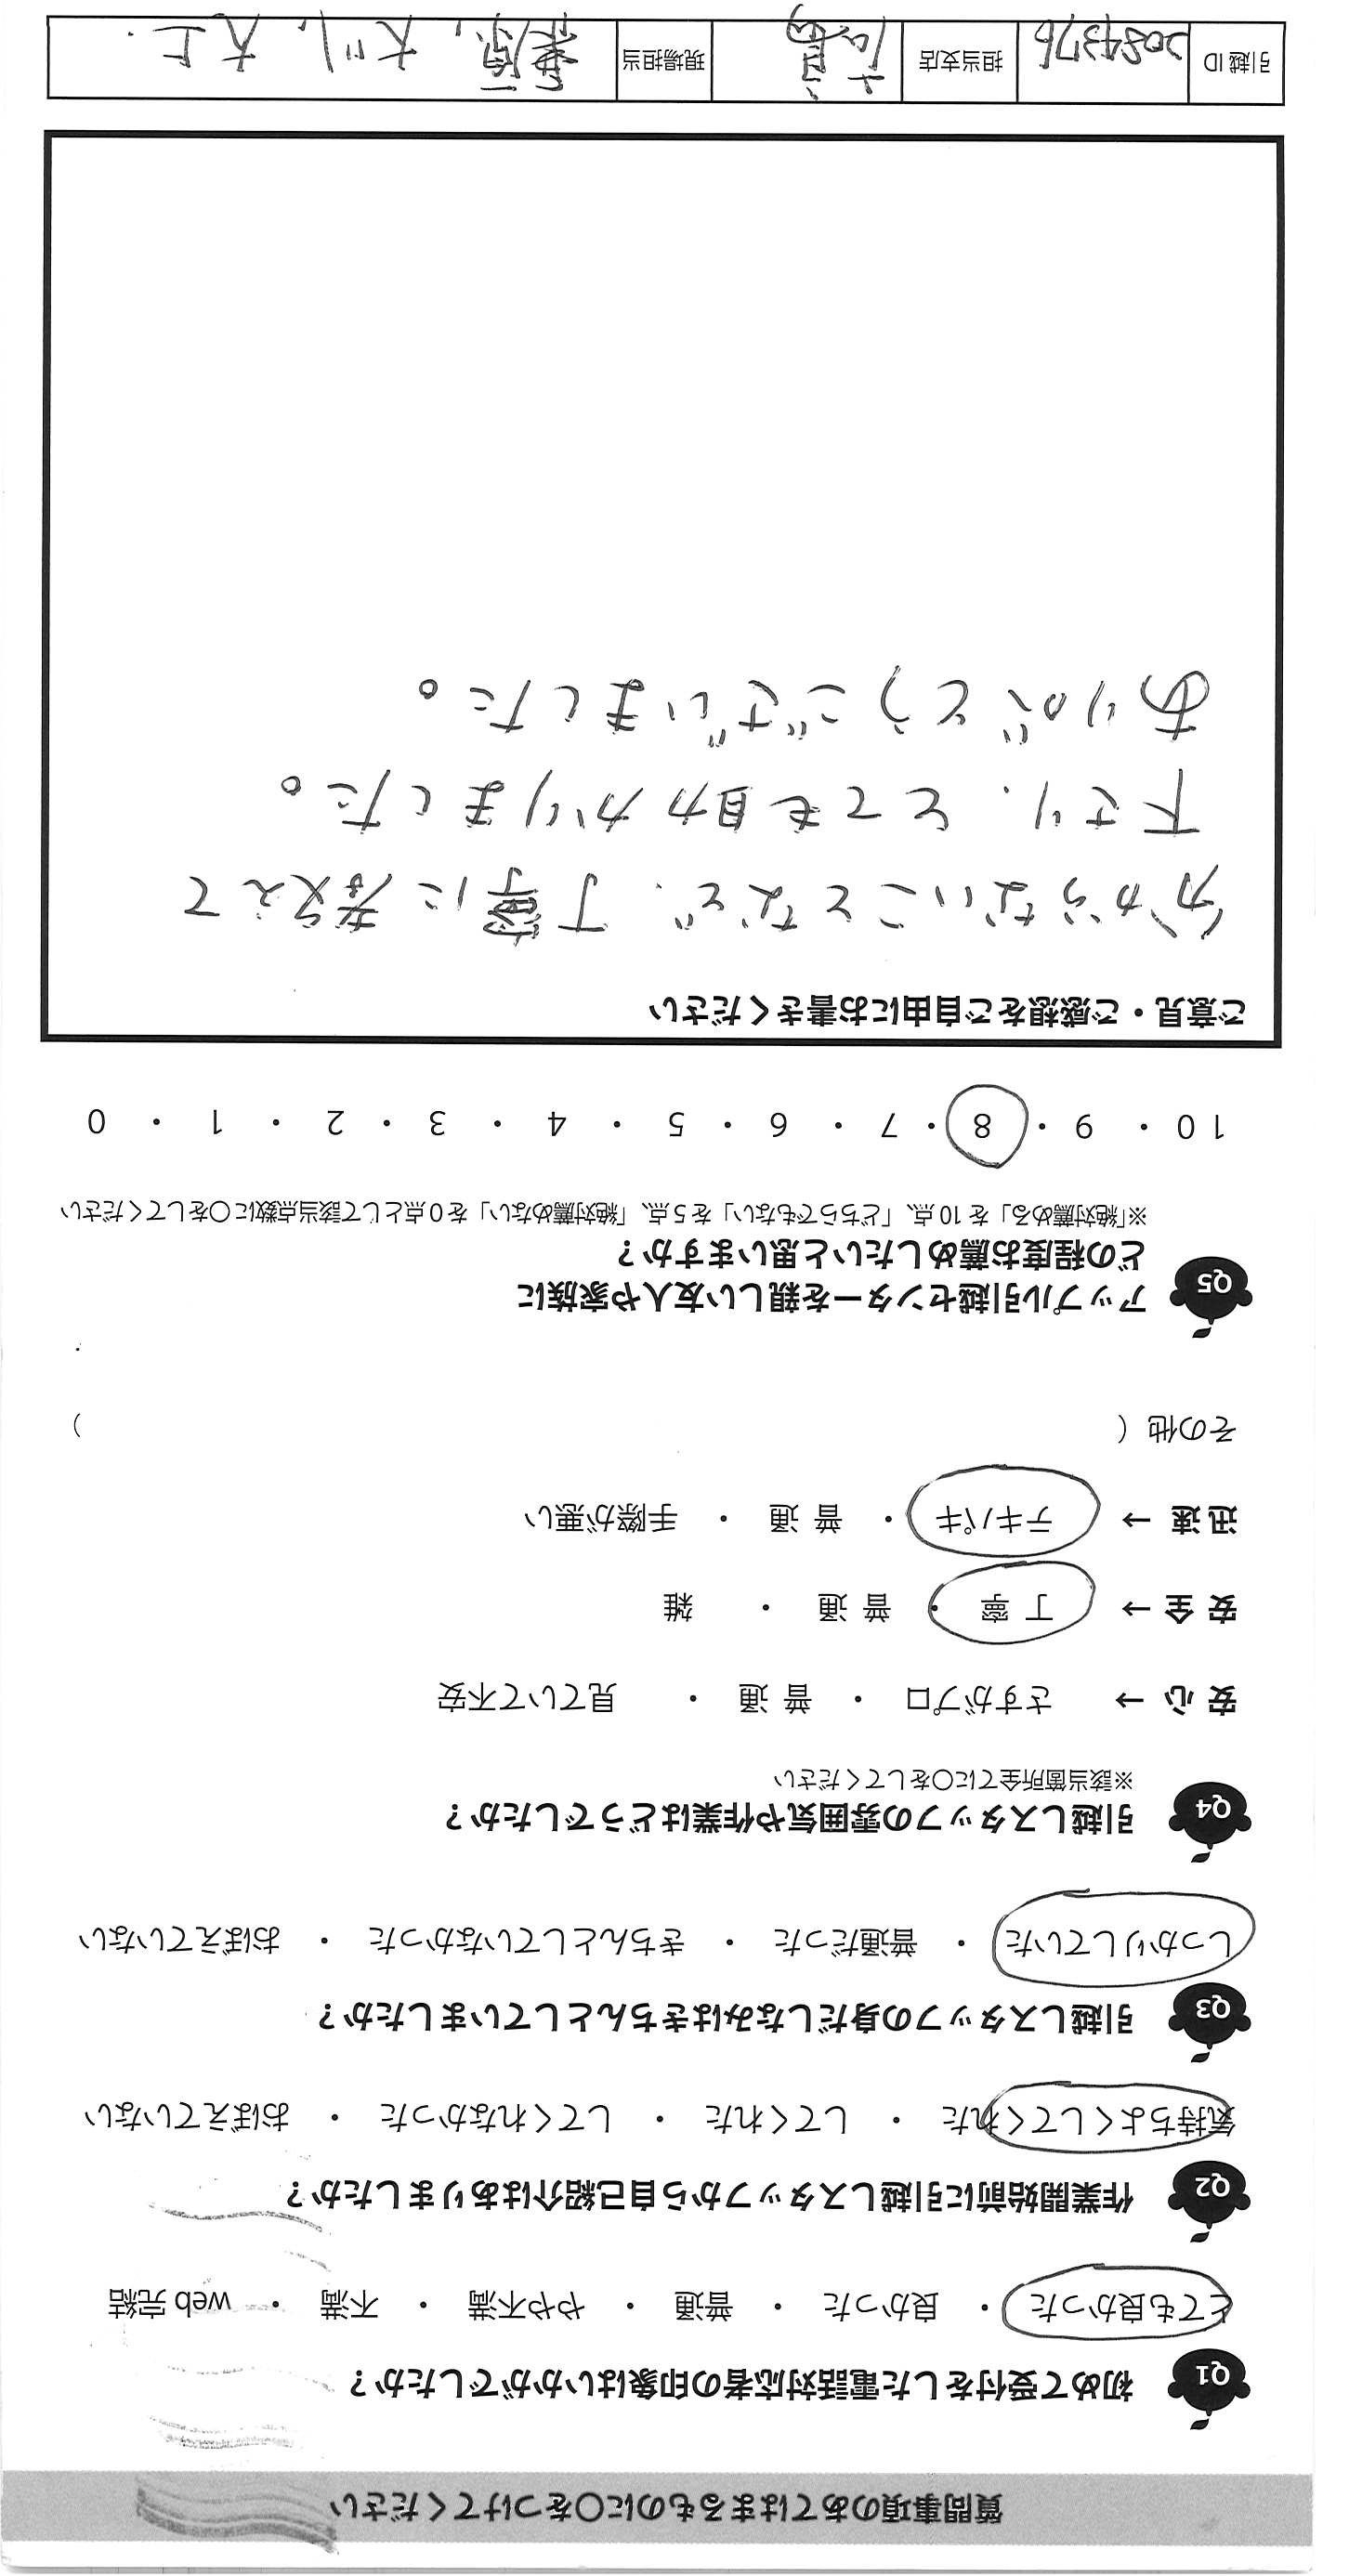 質問事項のあてはまるものに〇をつけてください
Q1 初めて受付をした電話対応者の印象はいかがでしたか？
とても良かった ・ 良かった ・ 普通 ・ やや不満 ・ 不満 ・ web 完結
Q2 作業開始前に引越しスタッフから自己紹介はありましたか？
気持ちよくしてくれた ・ してくれた ・ してくれなかった ・ おぼえていない
Q3 引越しスタッフの身だしなみはきちんとしていましたか？
しっかりしていた ・ 普通だった ・ きちんとしていなかった ・ おぼえていない
Q4 引越しスタッフの雰囲気や作業はどうでしたか？
※該当箇所全てに〇をしてください
安 心 → さすがプロ ・ 普 通 ・ 見ていて不安
安 全 → 丁 寧 ・ 普 通 ・ 雑
迅 速 → テキパキ ・ 普 通 ・ 手際が悪い
その他（ ）
Q5 アップル引越センターを親しい友人や家族に
どの程度お薦めしたいと思いますか？
※「絶対薦める」を 10 点、「どちらでもない」を 5 点、「絶対薦めない」を 0 点として該当点数に〇をしてください
10 ・ 9 ・ 8 ・ 7 ・ 6 ・ 5 ・ 4 ・ 3 ・ 2 ・ 1 ・ 0
ご意見・ご感想をご自由にお書きください
分からないことなど、丁寧に考えて
下さり、とても助かりました。
ありがとうございました。
引越 ID 2084376 担当支店 現場担当 大川、大上